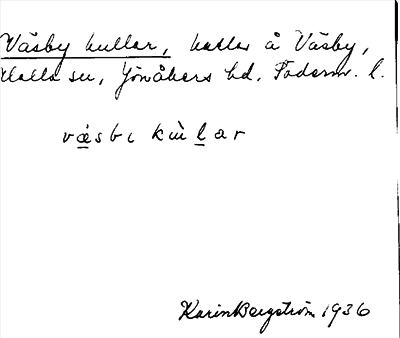 Väsby kullar, kullar å Väsby,
Halla sn, Jönåkers hd, Söderm. l.
væsbɩ kùlar
Karin Bergström 1936